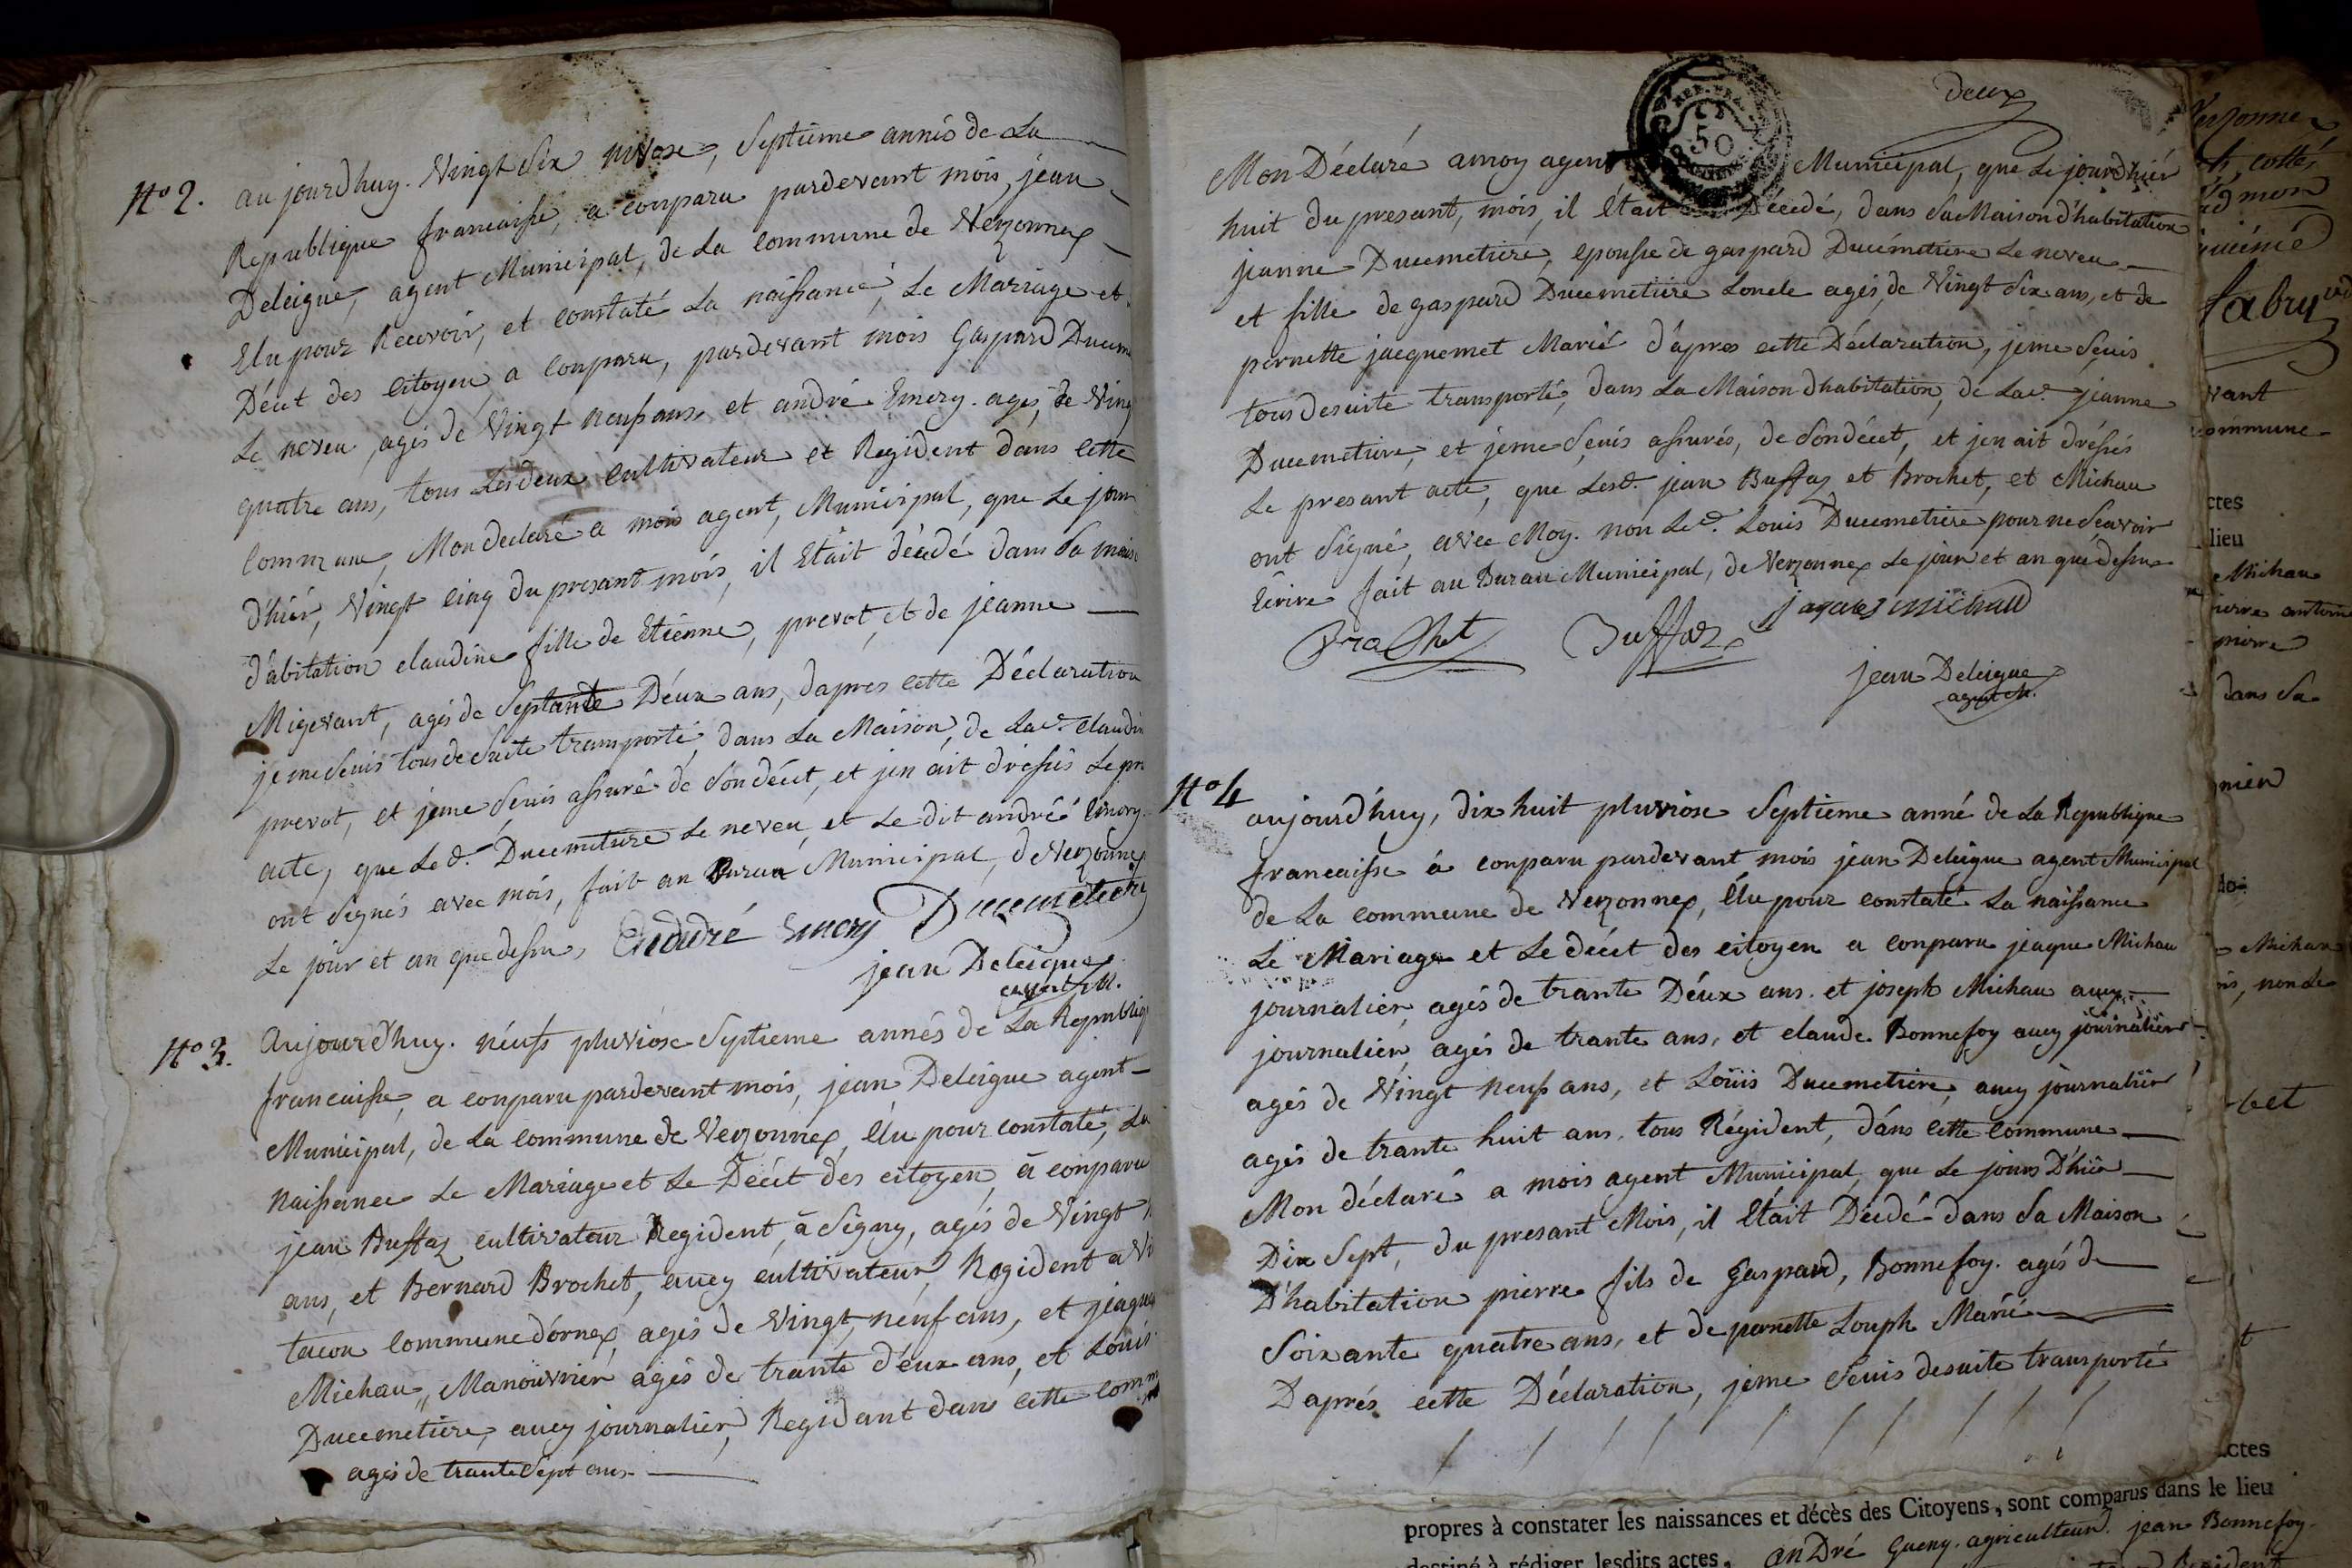 N° 2. aujourdhuy. Vingt Six nivose, Septieme annés de La
Republique francaisse, a conparu pardevant mois, jean
Deleigue, agent Municipal, de La Commune de Verzonnex
Elu pour Recevoir, et constaté La naissance, Le Mariage et
Décét des citoyen, a conparu, pardevant mois Gaspard Ducem
Le neveu, agés de Vingt neufs ans, et andré Emery. agés, de Ving
quatre ans, tous Lesdeux Cultivateur et Regident dans Cette
Commune, Mon declaré a mois agent, Municipal, que Le jour
d'hiér, Vingt cinq du presant mois, il Etait décédé dans Sa mais
d'abitation claudine fille de Etienne, prevot, et de jeanne
Migevant, agés de Septante Déux ans, dapres cette Déclaration
jeme Seuis tous de Suite transporté, dans La Maison, de Lad. Claudin
prevot, et jeme Seuis assuré de Son décét, et jen ait dressés Le pre
acte, que Led. Ducemetiere Le neveu, et Le dit andréé Emery.
ont Signés avec mois, fait au Bureau Municipal, de Verzonnex
Le jour et an que dessu, Endudré Emery Ducemetiere
jean Deleigue
agent M.
N° 3. Aujourdhuy. néufs pluviose Septieme annés de La Republiq
francaisse, a conparu pardevant mois, jean Deleigue agent
Municipal, de La commune de Verzonnex, Elu pour constaté, La
naissance Le Mariage et Le Décét des citoyen, à conparu
jean Buffaz cultivateur Regident, à Segny, agés de Vingt
ans, et Bernard Brochet, aucy cultivateur Regident a Vi
tacon commune d'ornex, agés de Vingt néuf ans, et jeaque
Michau, Manoüvriér agés de trante déux ans, et Louis
Ducemetiere, aucy journaliér, Regidant dans cette comm
agés de trante Sept ans
deux
Mon Déclaré amoy agent Municipal, que Le jourdhiér
50
huit du presant, mois, il était Décédé, dans Sa Maison d'habitation
jeanne Ducemetiere, epousse de gaspard Ducémetiere Le neveu
et fille de gaspard Ducemetiere Loncle agés, de Vingt Six ans, et de
pernette jacquemet Marié d'apres cette Déclaration, jeme Seuis
tous desuite transporté, dans La Maison d'habitation, de Lad. jeanne
Ducemetiere, et jeme Seuis assurés, de Son décét, et jen ait dréssés
Le presant acte, que Lesd. jean Buffaz et Brochet, et Michau
ont Signé, avec Moy. non Led. Louis Ducemetiere pour ne Scavoir
Ecrire fait au Bureau Municipal, de Verzonnex Le jour et an que dessus
Brochet Buffaz jaques michaud
jean Deleigue
agent M.
N° 4 aujourd'huy, dix huit pluviose Septieme anné de La Republique
francaisse à conparu pardevant mois jean Deleigue agent Municipal
de La commune de Verzonnex, Elu pour constaté La naissance
Le Mariage et Le décét des citoyen a conparu jeaque Michau
journaliér agés de trante Déux ans. et joseph Michau aucy
journaliér, agés de trante ans, et claude Bonnefoy aucy journaliér
agés de Vingt neufs ans, et Loüis Ducemetiere, aucy journaliér
agés de trante huit ans, tous Régident, dans Cette Commune
Mon déclaré a mois agent Municipal, que Le jours D'hiér
Dix Sept, du presant Mois, il Etait Décédé dans Sa Maison
D'habitation pierre fils de Gaspard, Bonnefoy. agés de
Soixante quatre ans, et de pernette Louph Marié
Daprés cette Déclaration, jeme Seuis desuite transporté
fabry
vant
commune
ctes
lieu
Michau
pierre antoine
pierre
dans Sa
Michau
non Le
ctes
propres à constater les naissances et décès des Citoyens, sont comparus dans le lieu
destiné à rédiger lesdits actes, anDré Gueny. agriculteur jean Bonnefoy